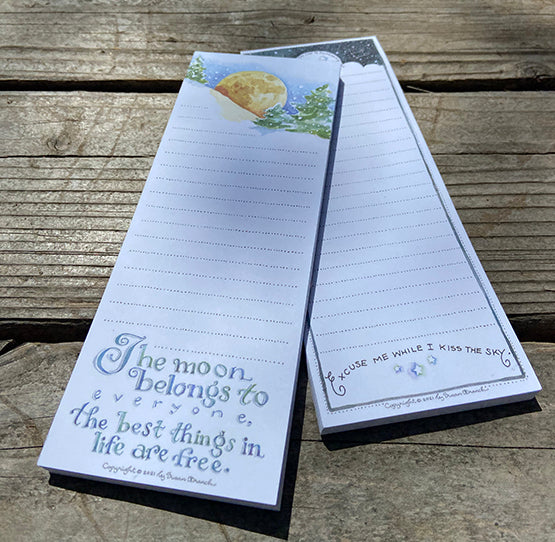 The moon
belongs to
everyone,
the best things in
life are free.
Copyright © 2021 by Susan Branch
EXCUSE ME WHILE I KISS THE SKY.
Copyright © 2021 by Susan Branch